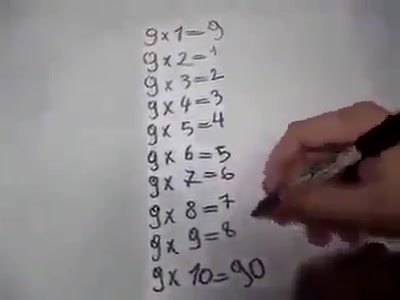 9 x 1 = 9
9 x 2 = 1
9 x 3 = 2
9 x 4 = 3
9 x 5 = 4
9 x 6 = 5
9 x 7 = 6
9 x 8 = 7
9 x 9 = 8
9 x 10 = 90